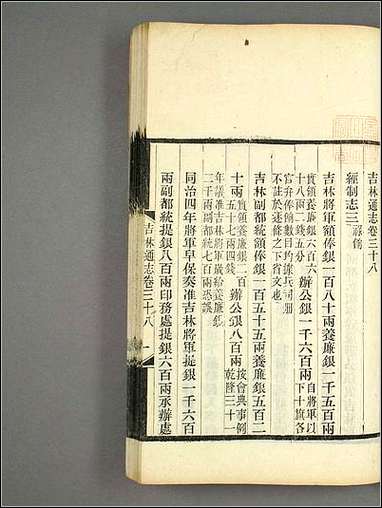 吉林通志卷三十八
經制志三 祿餉
吉林將軍額俸銀一百八十兩養廉銀一千五百兩
實領養廉銀六百六
十八兩二錢五分
辦公銀一千六百兩
自將軍以
下十旗各
官弁俸餉數目均據兵司冊
不註於逐條之下省文也
吉林副都統額俸銀一百五十五兩養廉銀五百二
十兩
實領養廉銀二百
五十七兩四錢
辦公銀八百兩
按會典事例
乾隆三十一
年議准吉林將軍歲給養廉銀
二千兩副都統七百兩恐誤
同治四年將軍阜保奏准吉林將軍提銀一千六百
兩副都統提銀八百兩印務處提銀六百兩承辦處
吉林通志卷三十八
一